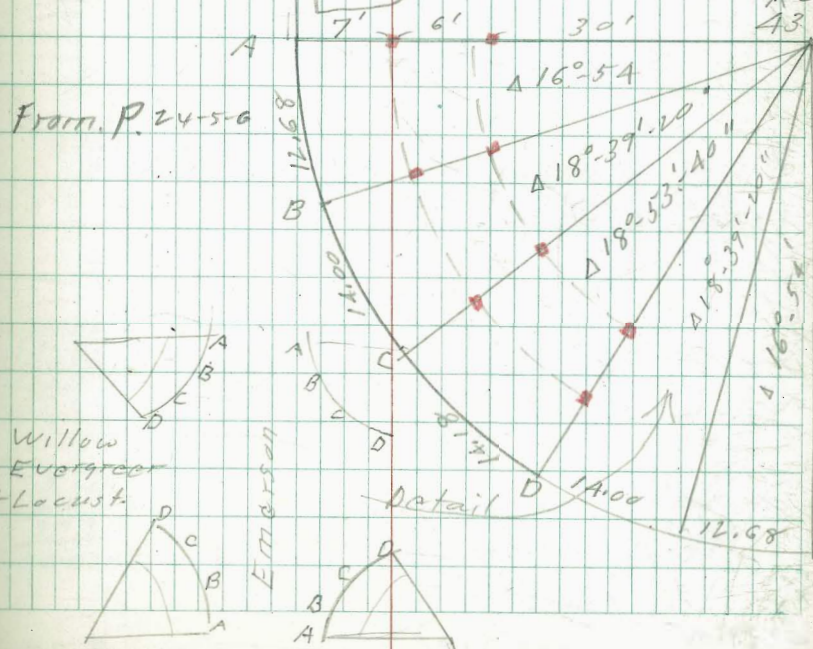 43
7' 6' 30'
A
Δ 16°-54
From. P. 24-5-6
12.68
Δ 18°-39'-20"
B
Δ 18°-53'-40"
Δ 18°-39'-20"
14.00
Δ 16°-54'
A
B
C
D
A
B
C
D
C
14.18
Willow
Evergreen
Locust.
Emerson
Detail
D
14.00
12.68
D
C
B
A
D
C
B
A